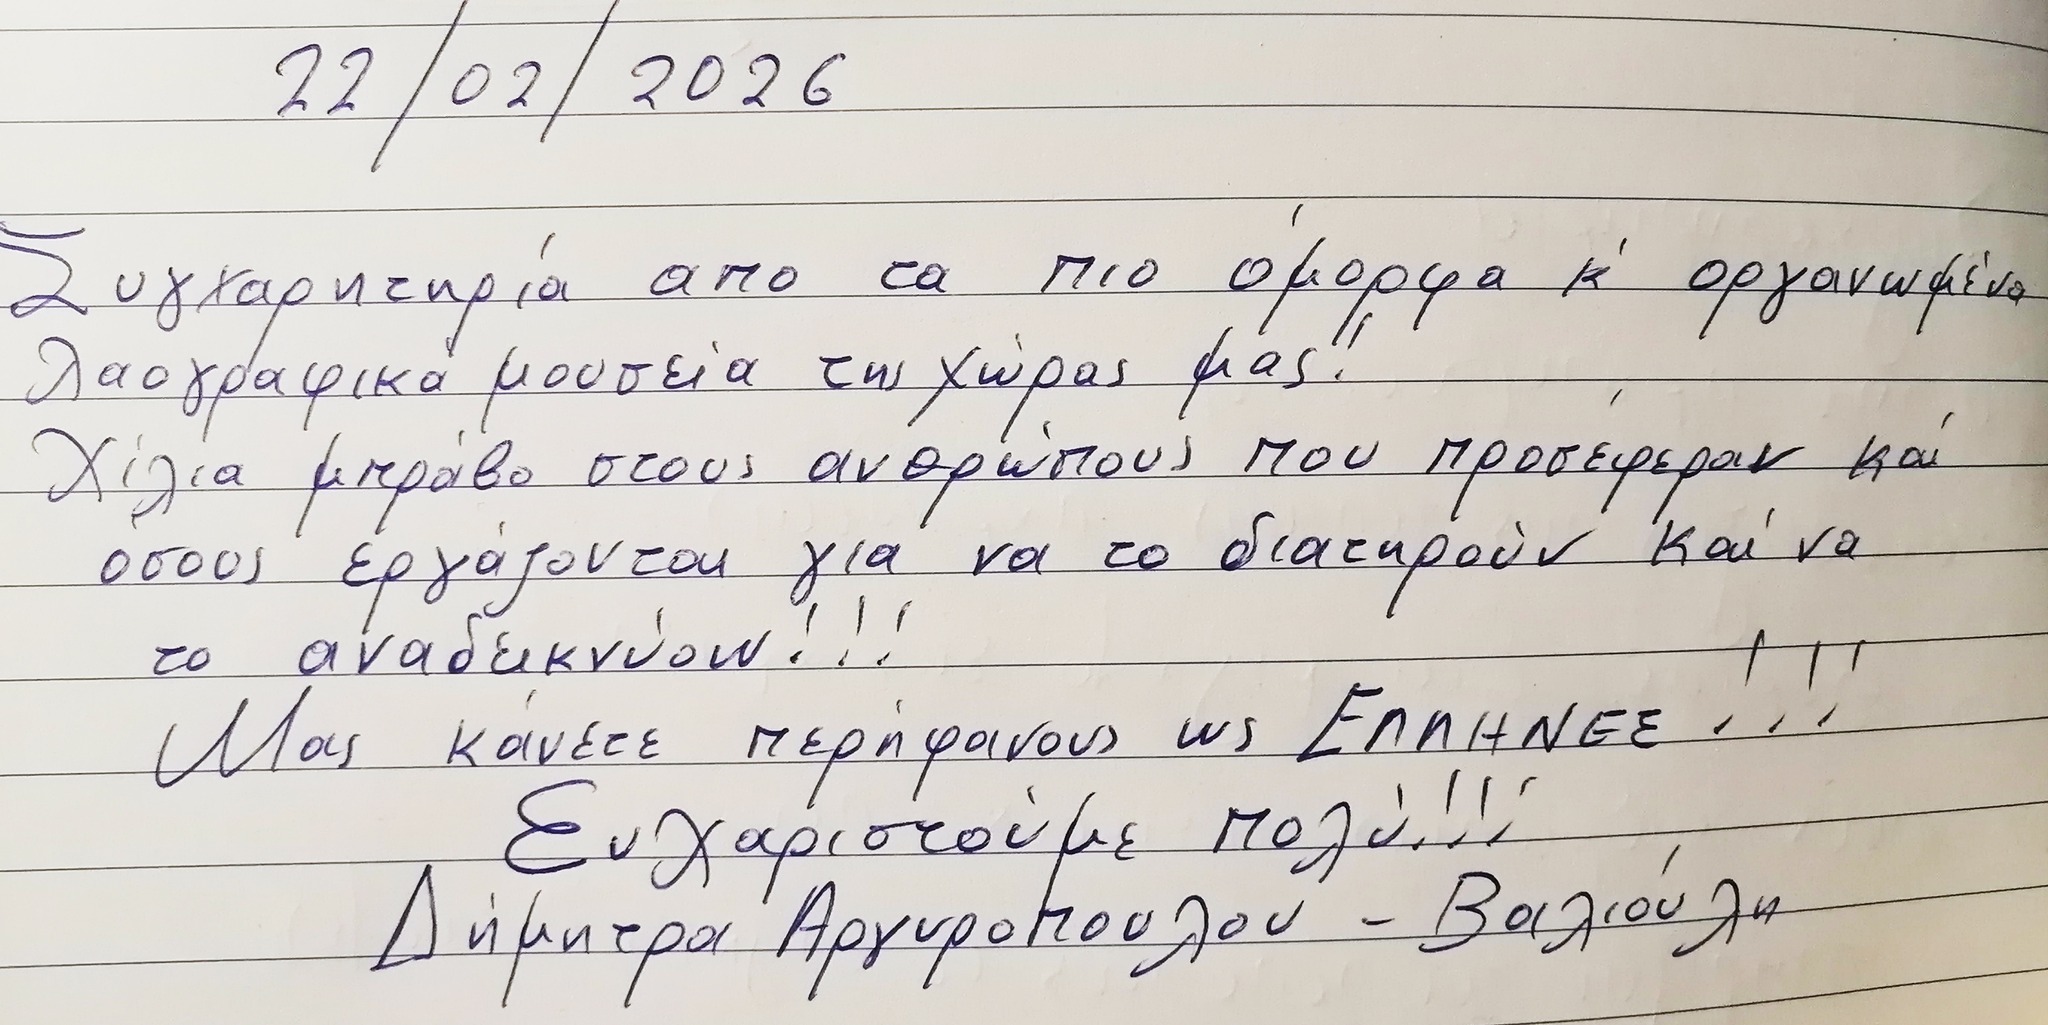 22/02/2026
Συγχαρητηρία απο τα πιο όμορφα κ' οργανωμένα
λαογραφικά μουσεία της χώρας μας!!
Χίλια μπράβο στους ανθρώπους που προσέφεραν καί
όσους εργάζονται για να το διατηρούν καί να
το αναδεικνύουν!!!
Μας κάνετε περήφανους ως ΕΛΛΗΝΕΣ!!!
Ευχαριστούμε πολύ!!!!
Δήμητρα Αργυροπουλου - Βαλιούλη